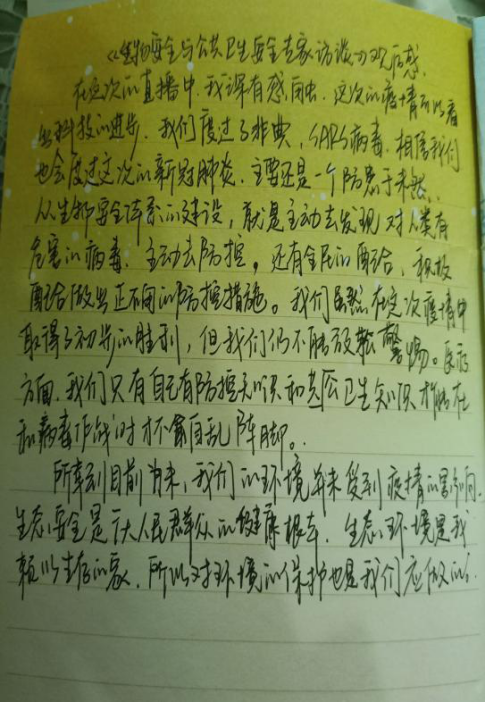 《生物安全与公共卫生安全专家访谈》观后感.
在这次的直播中.我深有感触.这次的疫情可以看
出科技的进步.我们度过了非典,SARS病毒.相信我们
也会度过这次的新冠肺炎.主要还是一个防患于未然.
从生物安全体系的建设,就是主动去发现对人类有
危害的病毒.主动去防控,还有全民的配合,积极
配合做出正确的防控措施。我们虽然在这次疫情中
取得了初步的胜利,但我们仍不能放松警惕。医疗
方面.我们只有自己有防控知识和公共卫生知识才能在
和病毒作战时才不会自乱阵脚。
所幸到目前为来.我们的环境并未受到疫情的影响.
生态安全是广大人民群众的健康根本.生态环境是我
赖以生存的家.所以对环境的保护也是我们应做的.